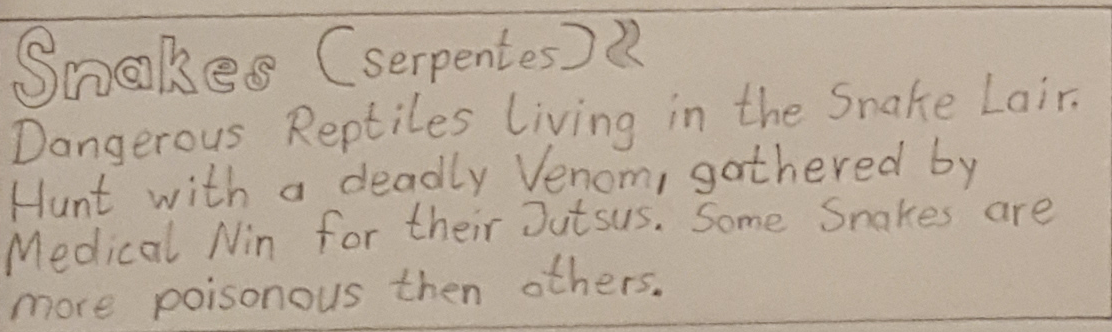 Snakes (serpentes)
Dangerous Reptiles living in the Snake Lair.
Hunt with a deadly Venom, gathered by
Medical Nin for their Jutsus. Some Snakes are
more poisonous then others.